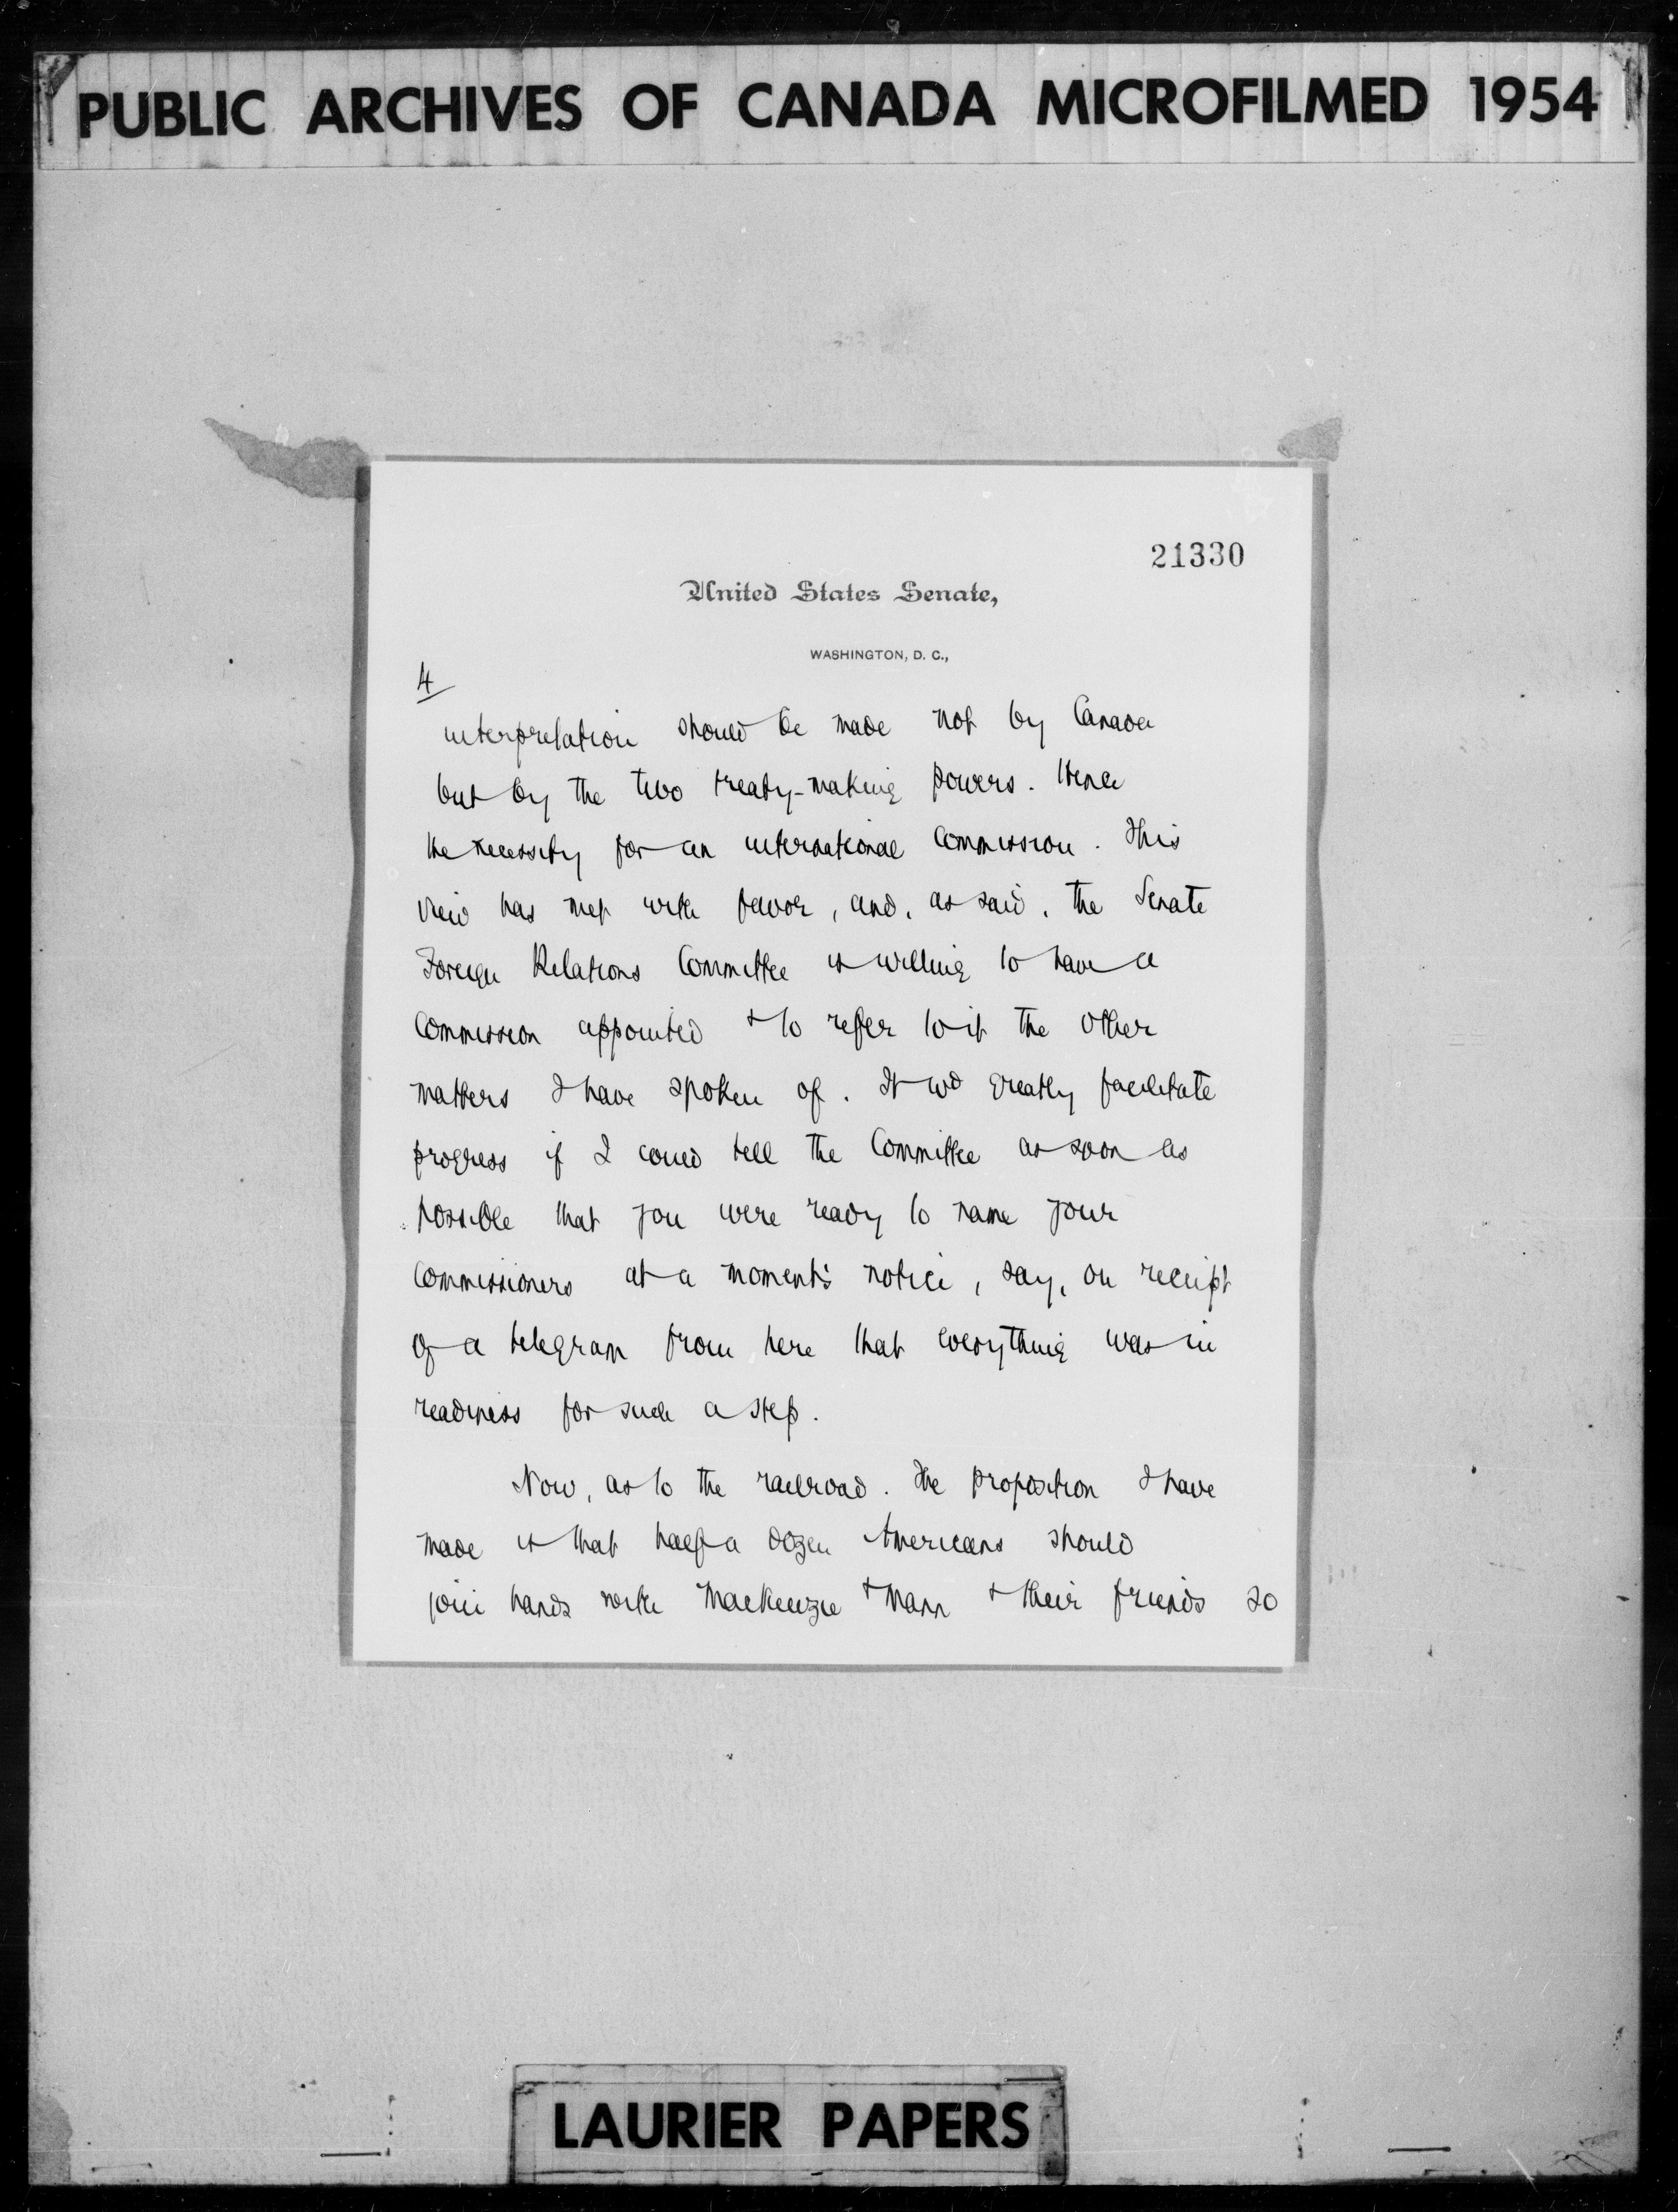 PUBLIC ARCHIVES OF CANADA MICROFILMED 1954
21330
United States Senate,
WASHINGTON, D. C.,
4
interpretation should be made not by Canada
but by the two treaty-making powers. Hence
the necessity for an international Commission. This
view has met with favor, and, as said, the Senate
Foreign Relations Committee is willing to have a
Commission appointed & to refer to it the other
matters I have spoken of. It wd greatly facilitate
progress if I could tell the Committee as soon as
possible that you were ready to name your
Commissioners at a moment's notice, say, on receipt
of a telegram from here that everything was in
readiness for such a step.
Now, as to the railroad. The proposition I have
made is that half a dozen Americans should
join hands with Mackenzie & Mann & their friends so
LAURIER PAPERS